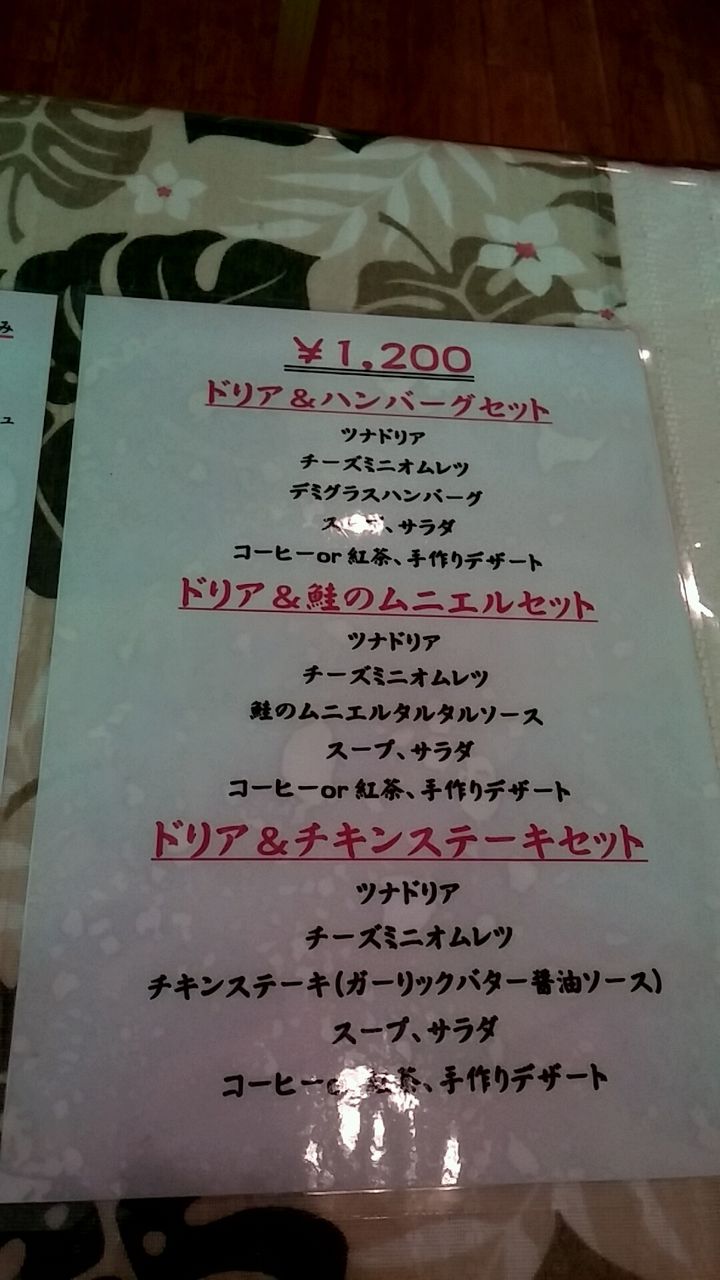 み
ュ
¥1,200
ドリア&ハンバーグセット
ツナドリア
チーズミニオムレツ
デミグラスハンバーグ
スープ、サラダ
コーヒーor紅茶、手作りデザート
ドリア&鮭のムニエルセット
ツナドリア
チーズミニオムレツ
鮭のムニエルタルタルソース
スープ、サラダ
コーヒーor紅茶、手作りデザート
ドリア&チキンステーキセット
ツナドリア
チーズミニオムレツ
チキンステーキ(ガーリックバター醤油ソース)
スープ、サラダ
コーヒーor紅茶、手作りデザート